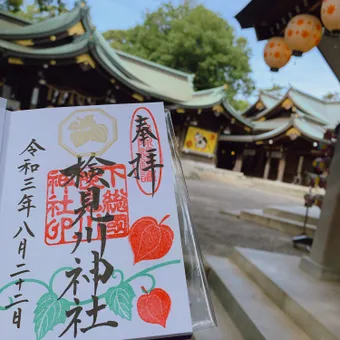 奉拝
検見川神社
下総国
神社印
令和三年八月二十二日